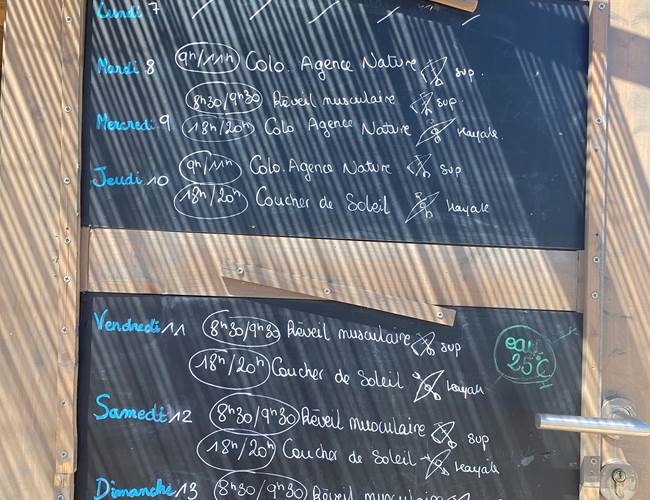 Lundi 7 / / / / /
Mardi 8 9h/11h Colo. Agence Nature sup.
8h30/9h30 Réveil musculaire sup.
Mercredi 9 18h/20h Colo Agence Nature Kayak.
Jeudi 10 9h/11h Colo. Agence Nature sup
18h/20h Coucher de Soleil Kayak
Vendredi 11 8h30/9h30 Réveil musculaire sup
18h/20h Coucher de Soleil Kayak
eau
25°C
Samedi 12 8h30/9h30 Réveil musculaire sup
18h/20h Coucher de Soleil Kayak
Dimanche 13 8h30/9h30 Réveil musculaire